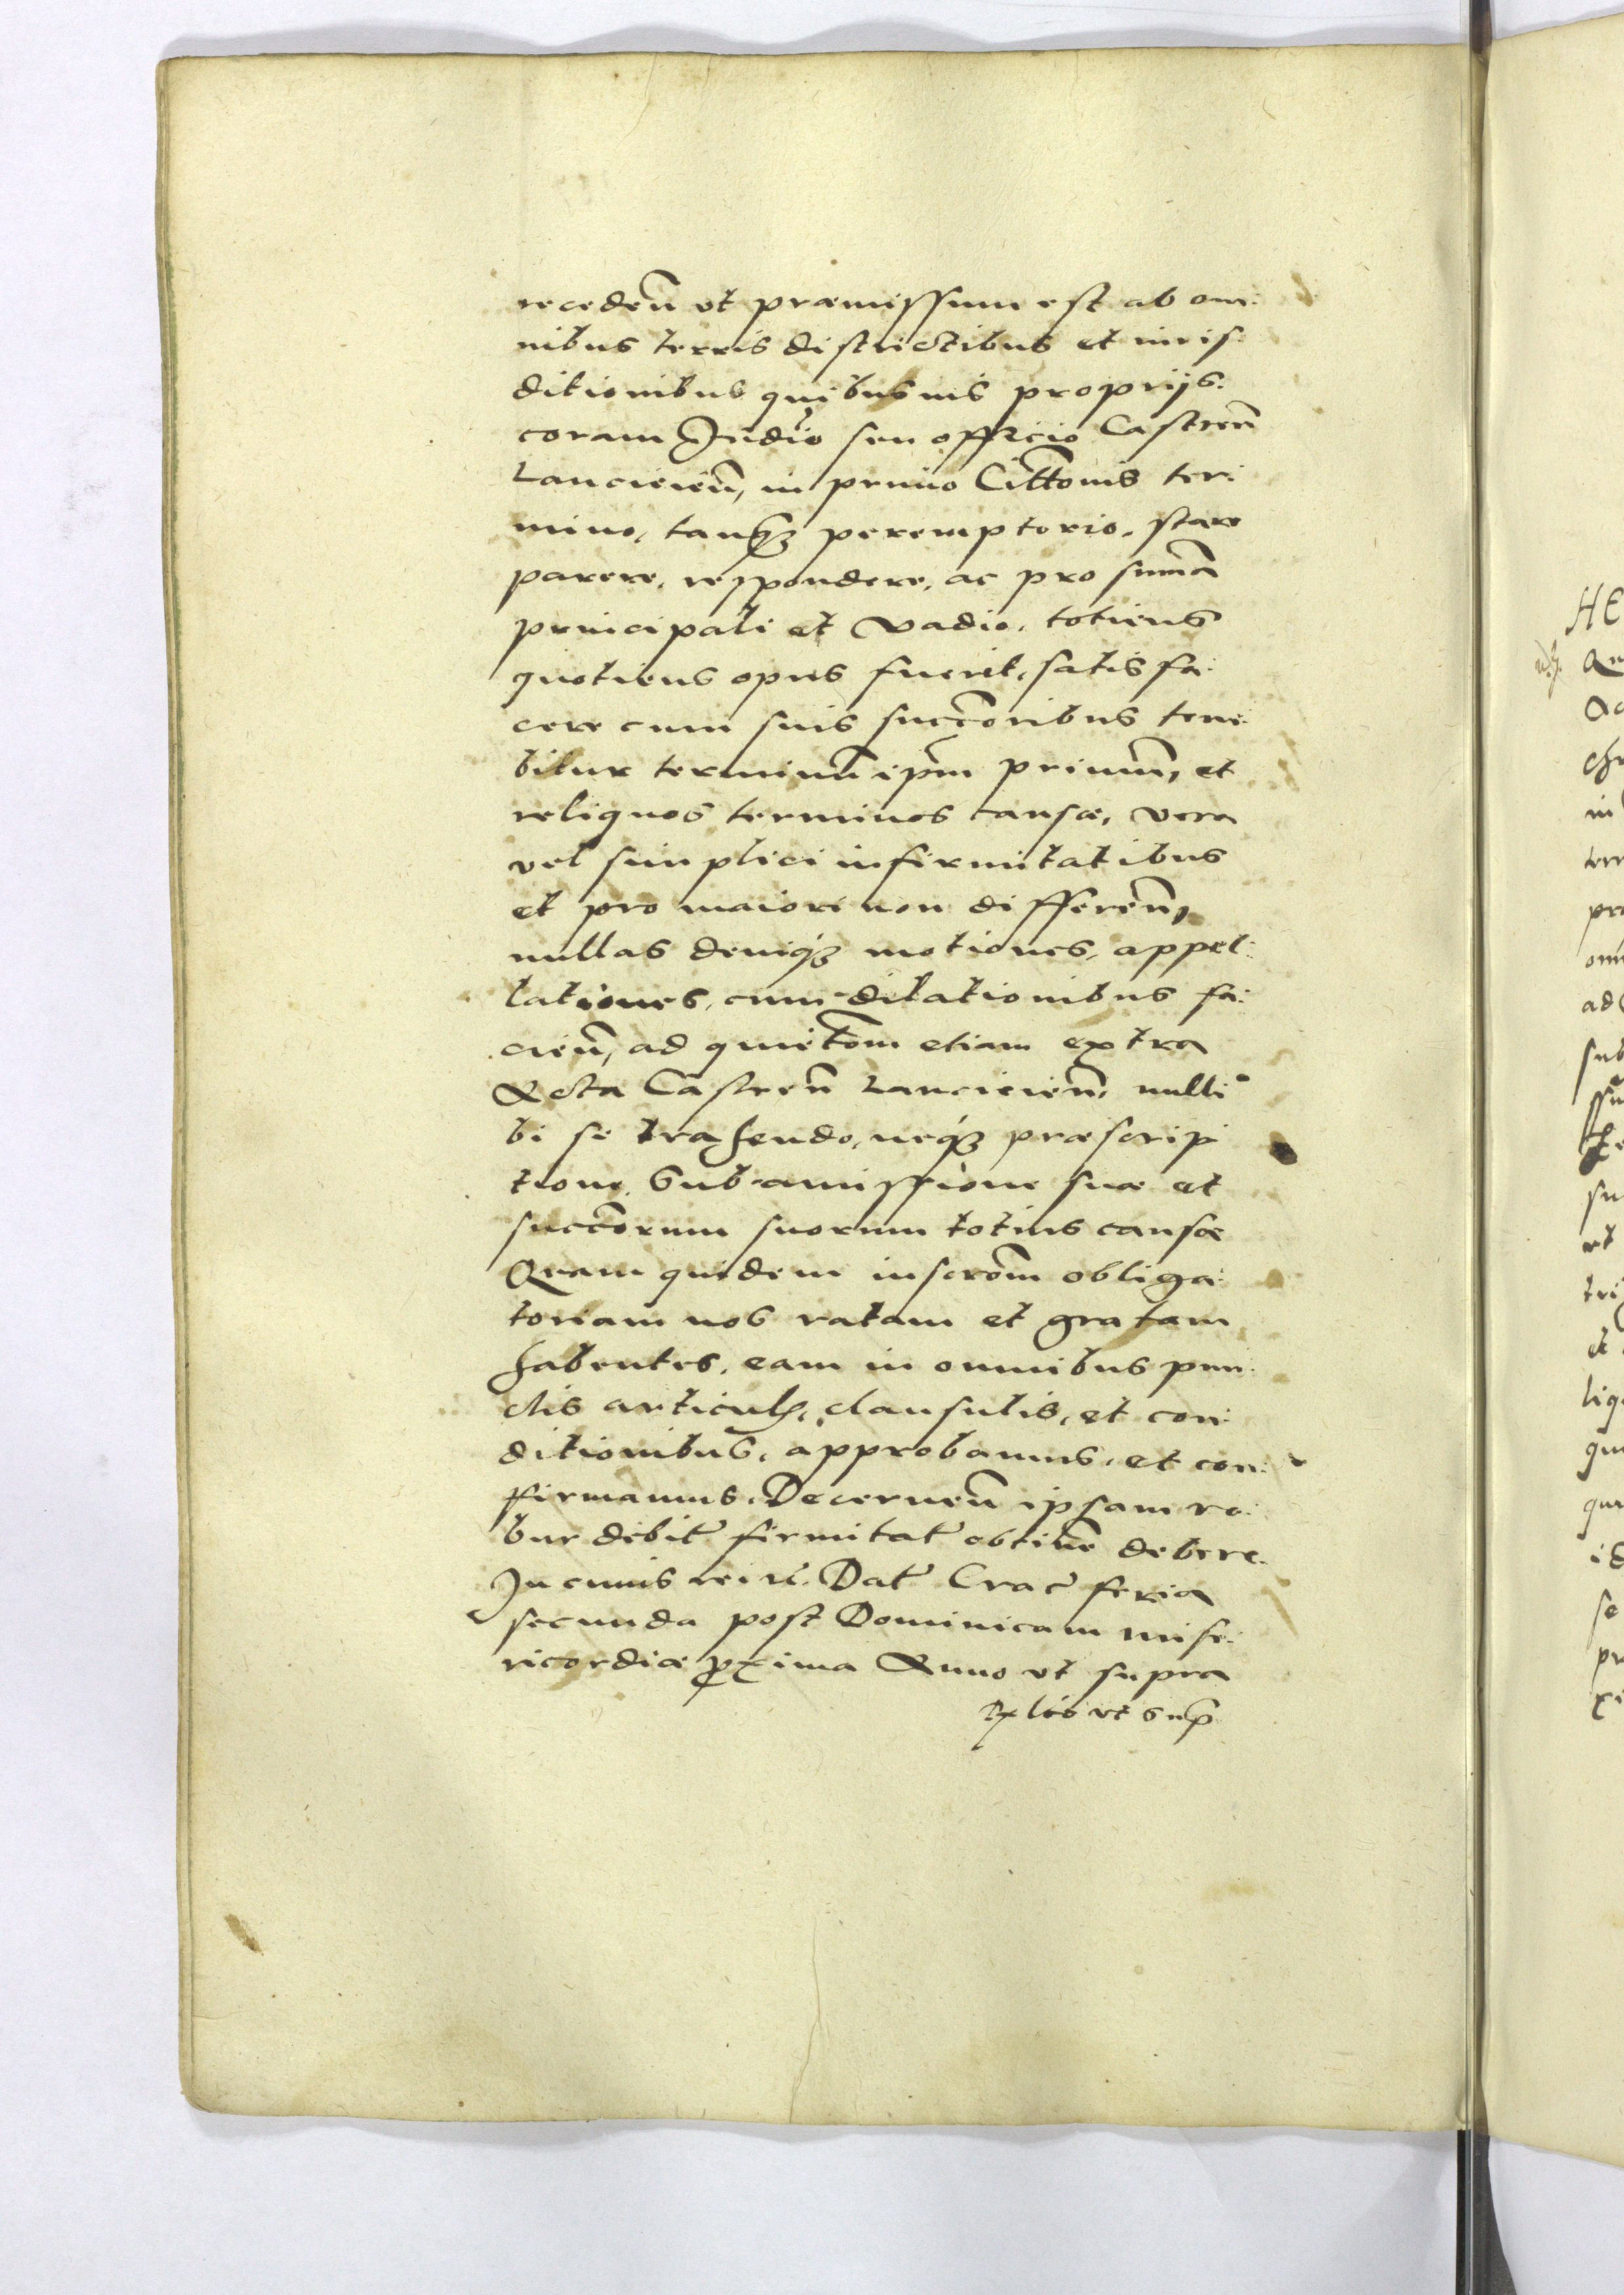 recedeñ vt præmissum est ab om:
nibus terris districtibus et iuris:
ditionibus quibusuis proprijs.
coram Iudio seu officio Castreñ
Lancicieñ, in primo Citt̃onis ter:
mino, tanq̃ȝ peremptorio, stare
parere, respondere, ac pro sum̃a
principali et vadio, totiens
quotiens opus fuerit, satisfa:
cere cum suis succ̃oribus tene:
bitur terminũ ip̃m primum̃, et
reliquos terminos causæ, vera
vel simplici infirmitatibus
et pro maiori non differeñ,
nullas deniqȝ motiones, appel:
lationes, cum dilationibus fa:
cieñ, ad quiet̃om etiam extra
Acta Castreñ Lancicieñ, nulli
bi se trahendo, neqȝ præscrip
tione, sub amissione suæ et
succ̃orum suorum totius causæ
Quam quidem inscr̃om obliga:
toriam nos ratam et gratam
habentes, eam in omnibus pun:
ctis articulis, clausulis, et con:
ditionibus, approbamus, et con:
firmamus, Decerneñ ipsam ro:
bur debit̃ firmitat̃ obtiner̃e debere.
In cuius rei rc̃. Dat̃ Crac̃ feria
secunda post Dominicam mise:
ricordiæ p̱xima Anno vt supra
Rx lĩo vt sup̃

HE